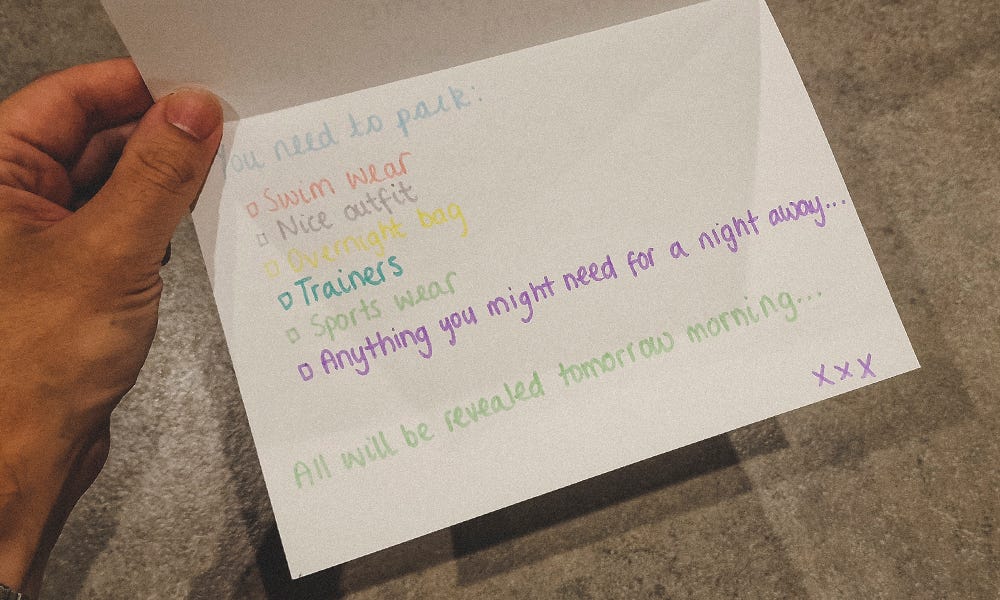 You need to pack:
Swim wear
Nice outfit
Overnight bag
Trainers
Sports wear
Anything you might need for a night away...
All will be revealed tomorrow morning...
xxx